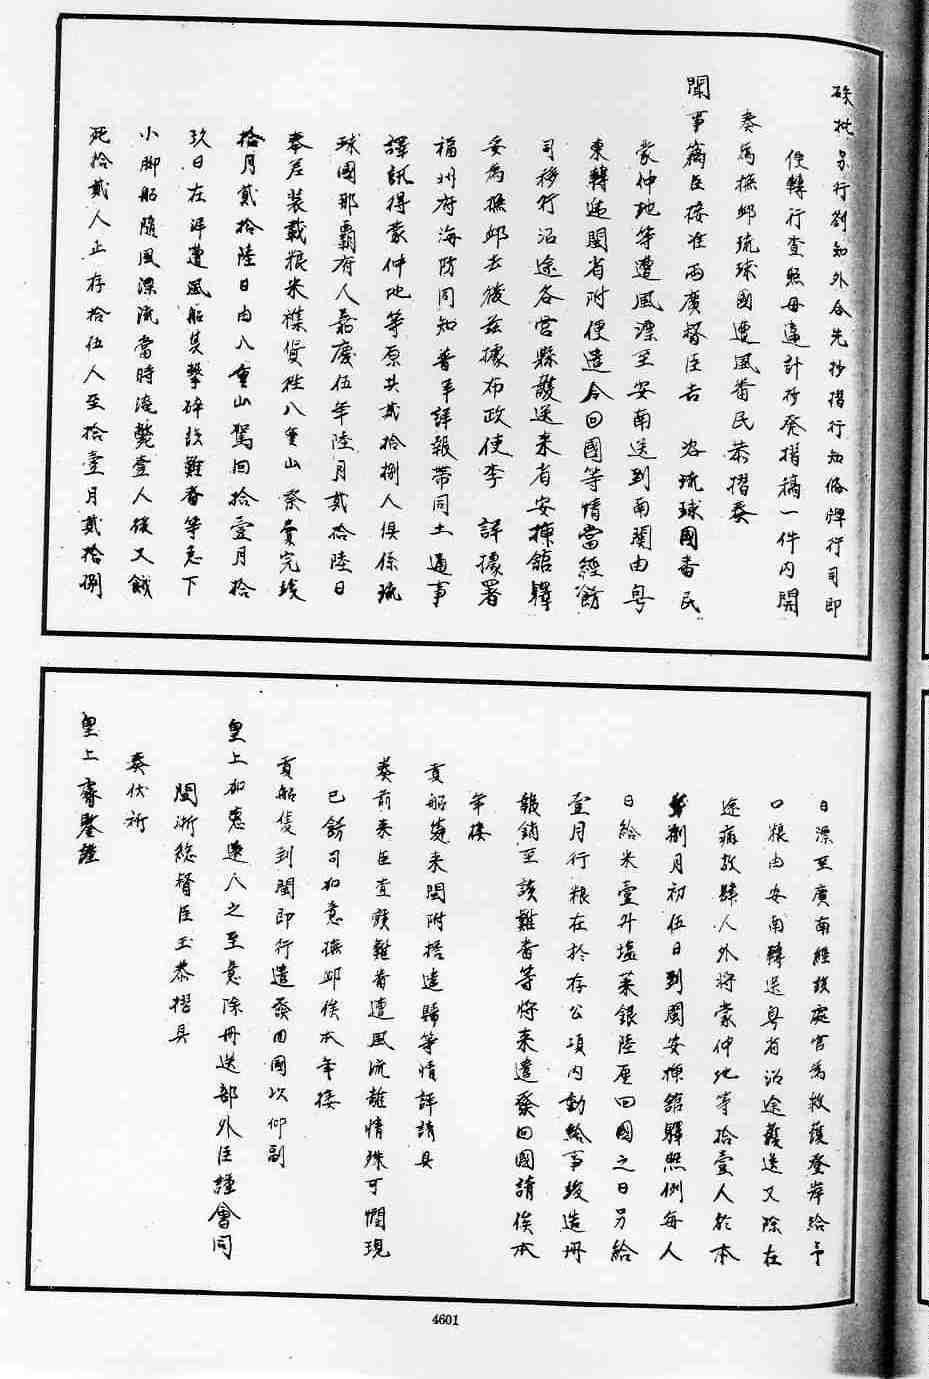 硃批另行劄知外合先抄摺行知俻牌行司即
便轉行查照毋違計抄發摺稿一件內開
奏為撫邺琉球國遭風畨民恭摺奏
聞事竊臣接准兩廣督臣吉　咨琉球國畨民
蒙仲地等遭風漂至安南送到南関由粤
東轉递閩省附便造令回國等情當經飭
司移行沿途各官縣護送来省安揷館驛
妥為撫邺去後兹據布政使李　詳據署
福州府海防同知普丰詳報帶同土通事
譯訊得蒙仲地等原共貳拾捌人俱係琉
球國那霸府人嘉慶伍年陸月貳拾陸日
奉差装載粮米襍貨徃八重山祭賣完竣
拾月貳拾陸日由八重山駕回拾壹月拾
玖日在洋遭風船隻擊碎該難畨等急下
小脚船隨風漂流當時淹斃壹人後又餓
死拾貳人止存拾伍人至拾壹月貳拾捌
日漂至廣南經該處官為救護登岸給予
口粮由安南轉送粤省沿途護送又除在
途病故肆人外將蒙仲地等拾壹人於本
年捌月初伍日到閩安揷館驛照例每人
日給米壹升塩菜銀陸厘回國之日另給
壹月行粮在於存公項内動給事竣造冊
報銷至該難畨等将来遣發回國請俟本
年接
貢船隻来閩附搭遣歸等情詳請具
奏前来臣查該難畨遭風流離情殊可憫現
已飭司加意撫邺俟本年接
貢船隻到閩即行遣發回國以仰副
皇上加惠遠人之至意除冊送部外臣謹會同
閩浙総督臣玉恭摺具
奏伏祈
皇上睿鑒謹
4601